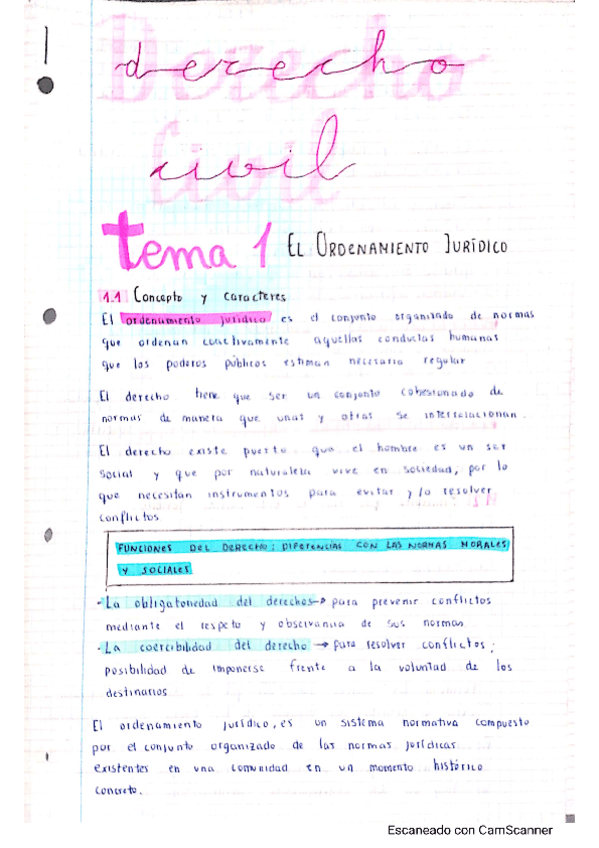 derecho
civil
tema 1 EL ORDENAMIENTO JURÍDICO
1.1 Concepto y caracteres
El ordenamiento jurídico es el conjunto organizado de normas
que ordenan coactivamente aquellas conductas humanas
que los poderes públicos estiman necesario regular
El derecho tiene que ser un conjunto cohesionado de
normas de manera que unas y otras se interrelacionan.
El derecho existe puesto que el hombre es un ser
social y que por naturaleza vive en sociedad, por lo
que necesitan instrumentos para evitar y/o resolver
conflictos
FUNCIONES DEL DERECHO: DIFERENCIAS CON LAS NORMAS MORALES
Y SOCIALES
- La obligatoriedad del derechos → para prevenir conflictos
mediante el respeto y observancia de sus normas
- La coercibilidad del derecho → para resolver conflictos;
posibilidad de imponerse frente a la voluntad de los
destinarios
El ordenamiento jurídico, es un sistema normativa compuesto
por el conjunto organizado de las normas jurídicas
existentes en una comunidad en un momento histórico
concreto.
Escaneado con CamScanner